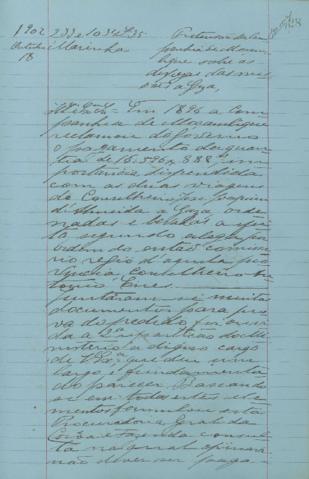 1902
Outubro
18
233 e 1034 L 35
Marinha
Pretensão da Com
panhia de Moçam
bique sobre as
despezas das mis
sões a Gaza,
Em 1896 a Com
panhia de Moçambique
reclamou do Governo
o pagamento da quan
tia de 16.596$888 im
portancia dispendida
com as duas viagens
do Conselheiro José Joaquim
d'Almeida a Gaza, orde
nadas e
segundo allega, por
ordem do então commissa
rio regio d'aquella pro
vincia Conselheiro An
tonio Ennes.
Juntaram-se muitos
documentos para pro
va do pedido, foi ouvi
da a 2ª repartição do Mi
nisterio a digno cargo
de V. Exª, que deu um
largo e fundamenta
do parecer. Baseando
se em todos estes ele
mentos formulou esta
Procuradoria Geral da
Corôa e Fazenda consul
ta na qual opinava
não dever ser paga